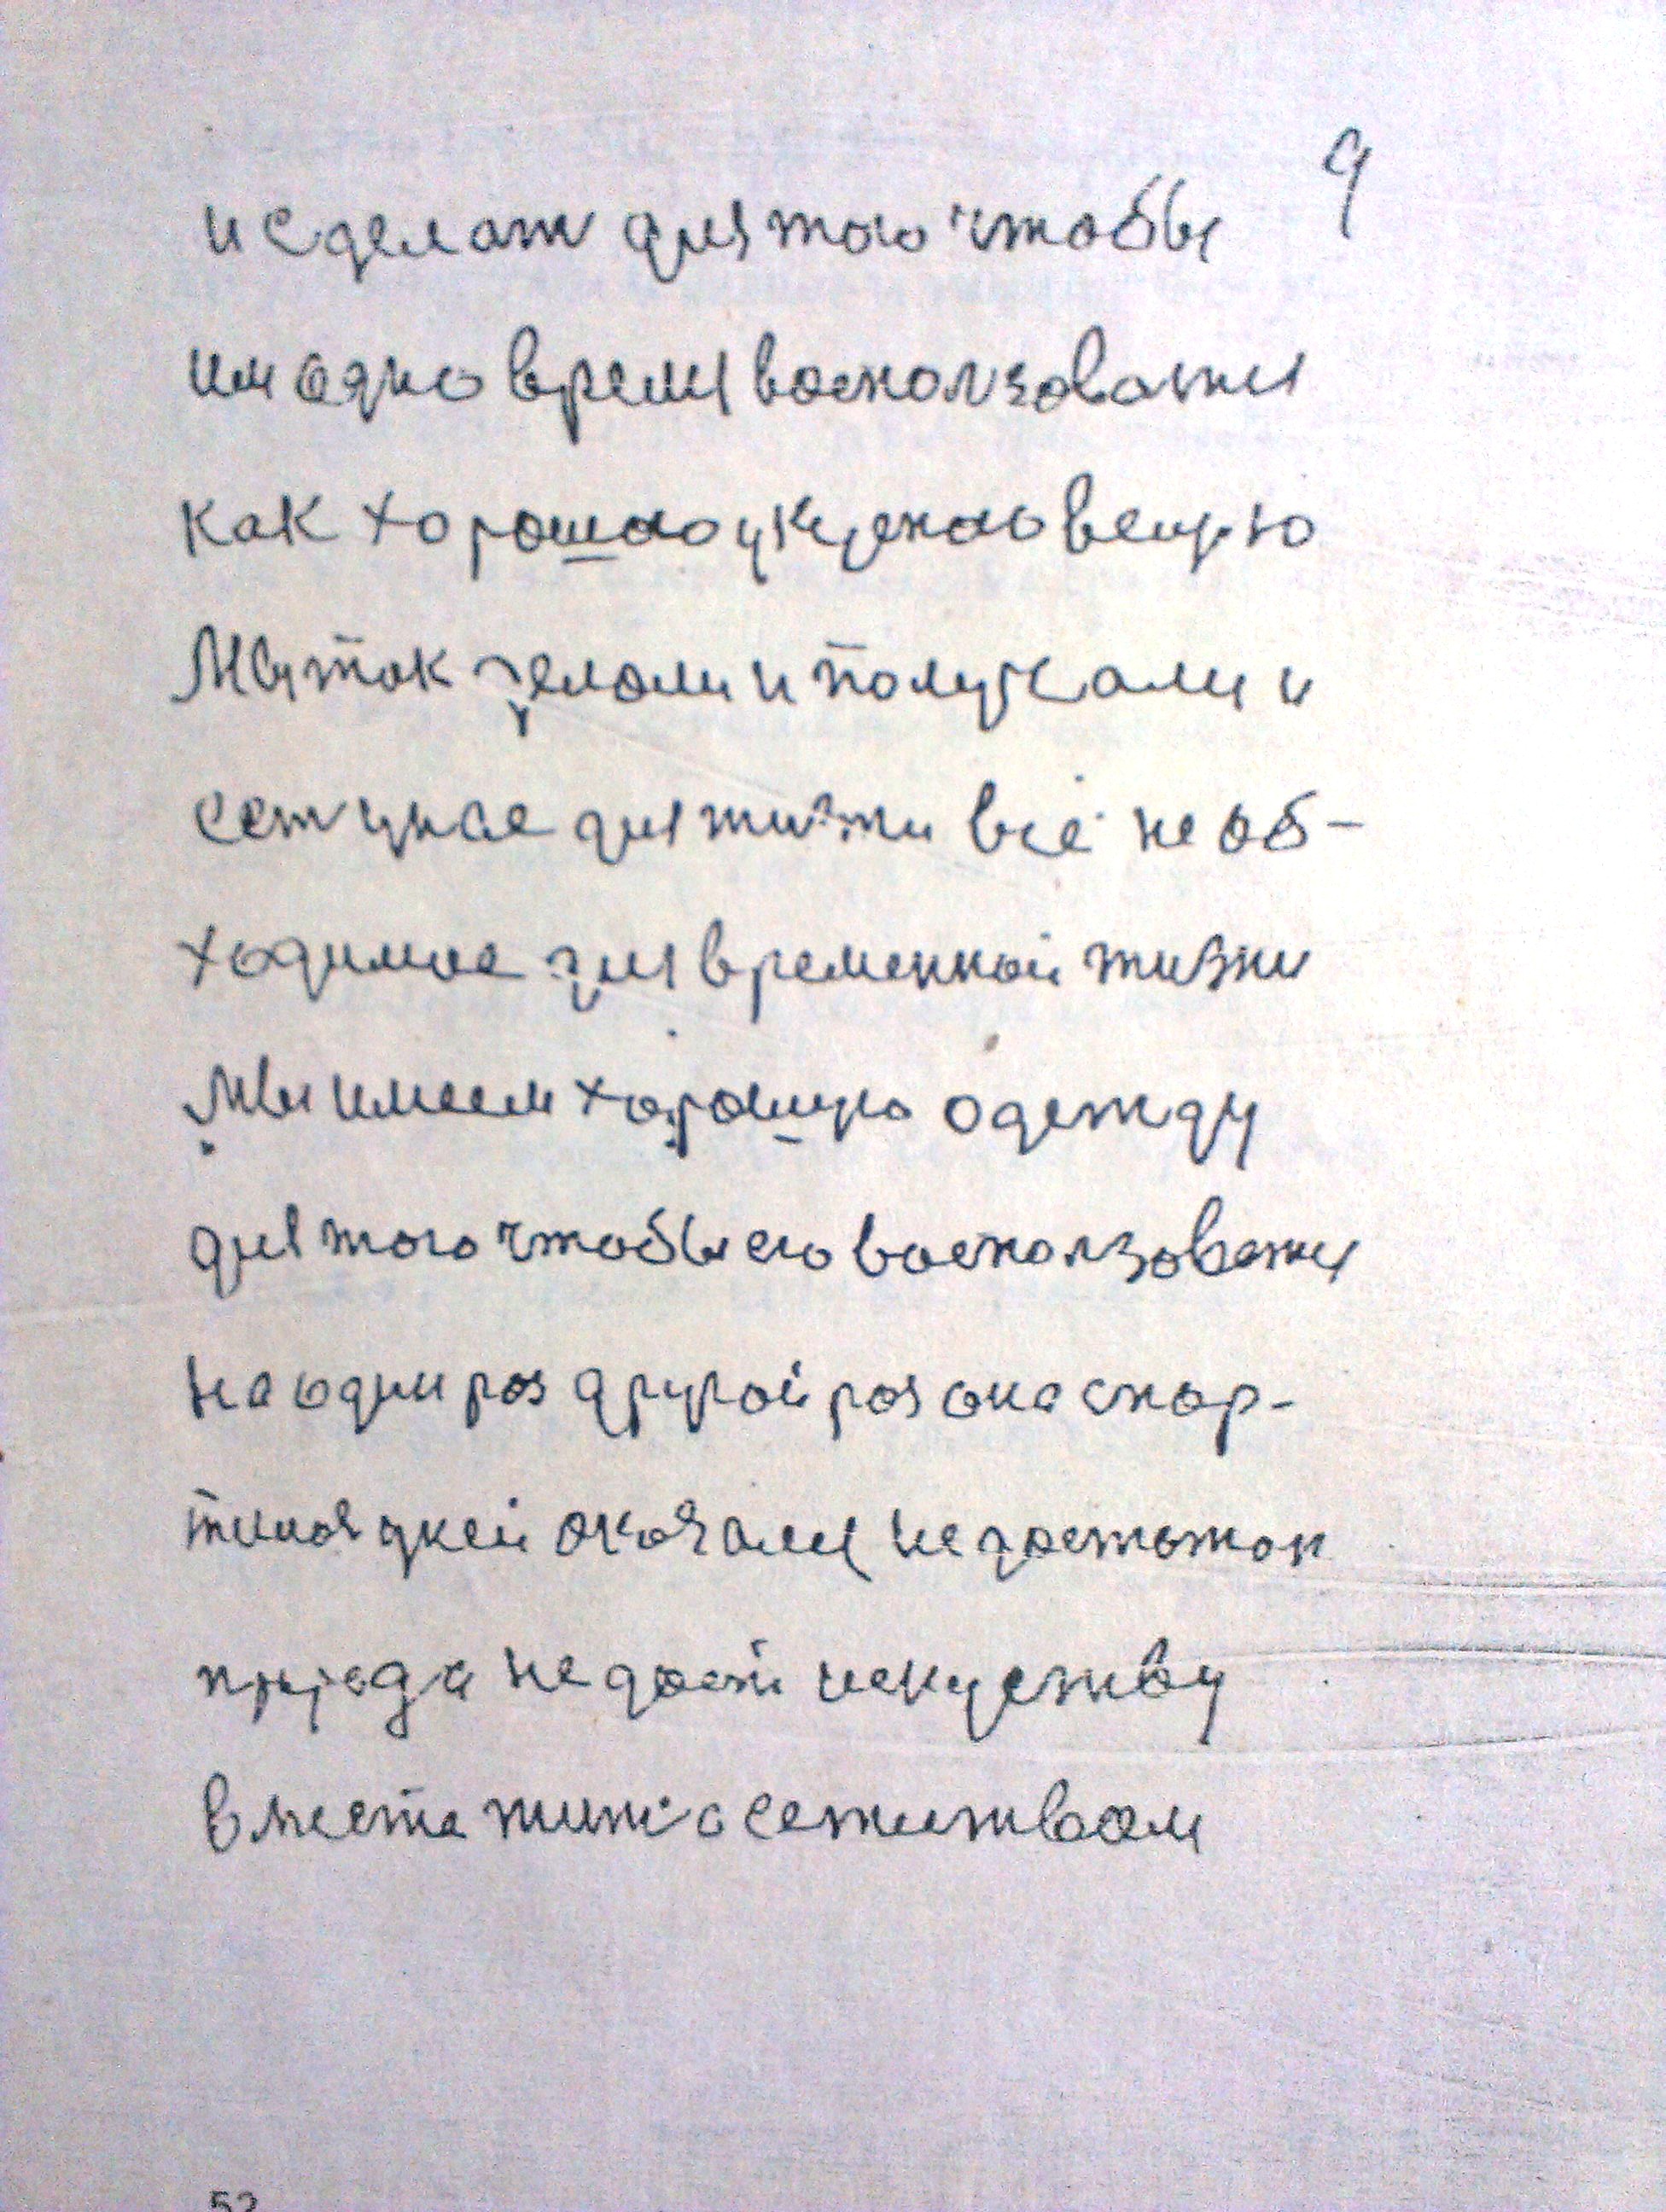 9
и сделат для того чтобы
им одно время восползоватся
как хорошаю укусною вещью
Мы так делали и получали и
есть у нас для жизни всё необ-
ходимое для временной жизни
Мы имеем хорошую одежду
для того чтобы его восползоватся
на один раз другой раз она спор-
тилась у ней оказался недостаток
природа не дает искуству
вместе жить с естиством
52